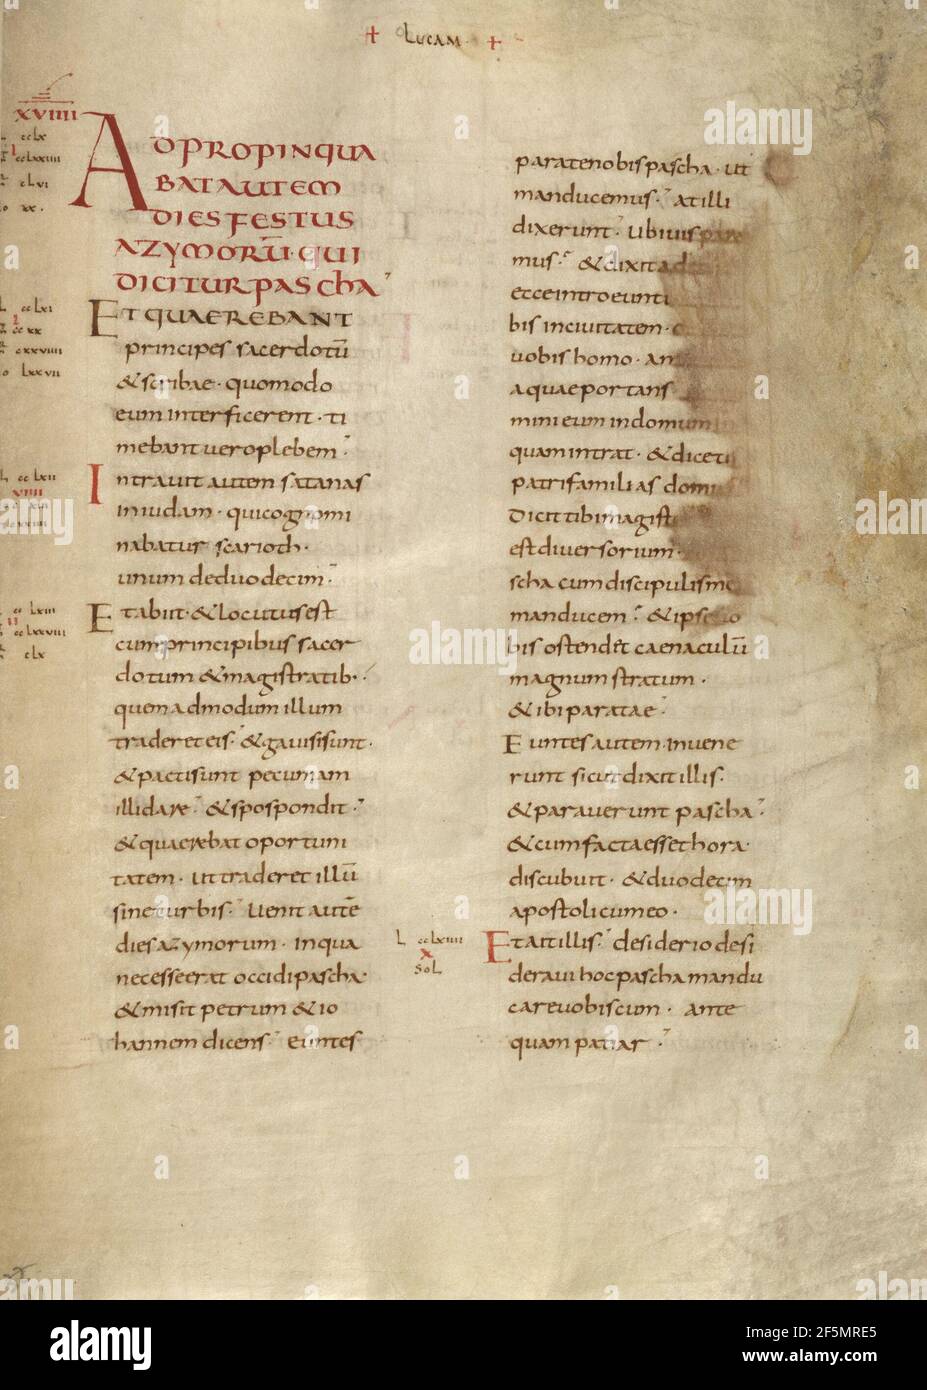 + LUCAM +
XVIIII
ADPROPINQUA
BATAUTEM
DIESFESTUS
AZYMORŪ · QUI
DICITURPASCHA
ETQUAEREBANT
principes sacerdotū
&scribae · quomodo
eum interficerent · ti
mebant veroplebem
Intravit autem satanas
iniudam · quicognomi
nabatur scarioth ·
unum deduodecim
Etabiit · &locutusest
cumprincipibus sacer
dotum &magistratib ·
quemadmodum illum
traderet eis · &gavisisunt ·
&pactisunt pecuniam
illidare · &spospondit ·
&quaerebat oportuni
tatem · uttraderet illū
sineturbis · Venit autē
diesazymorum · inqua
necesseerat occidipascha ·
&misit petrum &io
hannem dicens euntes
paratenobispascha · ut
manducemus · atilli
dixerunt · Ubivis pare
mus · &dixitad
ecceintroeunti
bis incivitatem ·
vobis homo · am
aquaeportans
mini eum indomum
quam intrat · &diceti
patrifamilias domus
Dicittibimagist
estdiversorium ·
scha cumdiscipulisme
manducem · &ipsevo
bis ostendet caenaculū
magnum stratum ·
&ibi paratae ·
Euntesautem · invene
runt sicutdixitillis ·
&paraverunt pascha ·
&cumfactaessethora ·
discubuit · &duodecim
apostolicumeo ·
L ccLxiiii
X
SOL
Etaitillis · desideriodesi
deravi hocpaschamandu
carevobiscum · ante
quam patiar ·
alamy
Image ID: 2F5MRE5
www.alamy.com